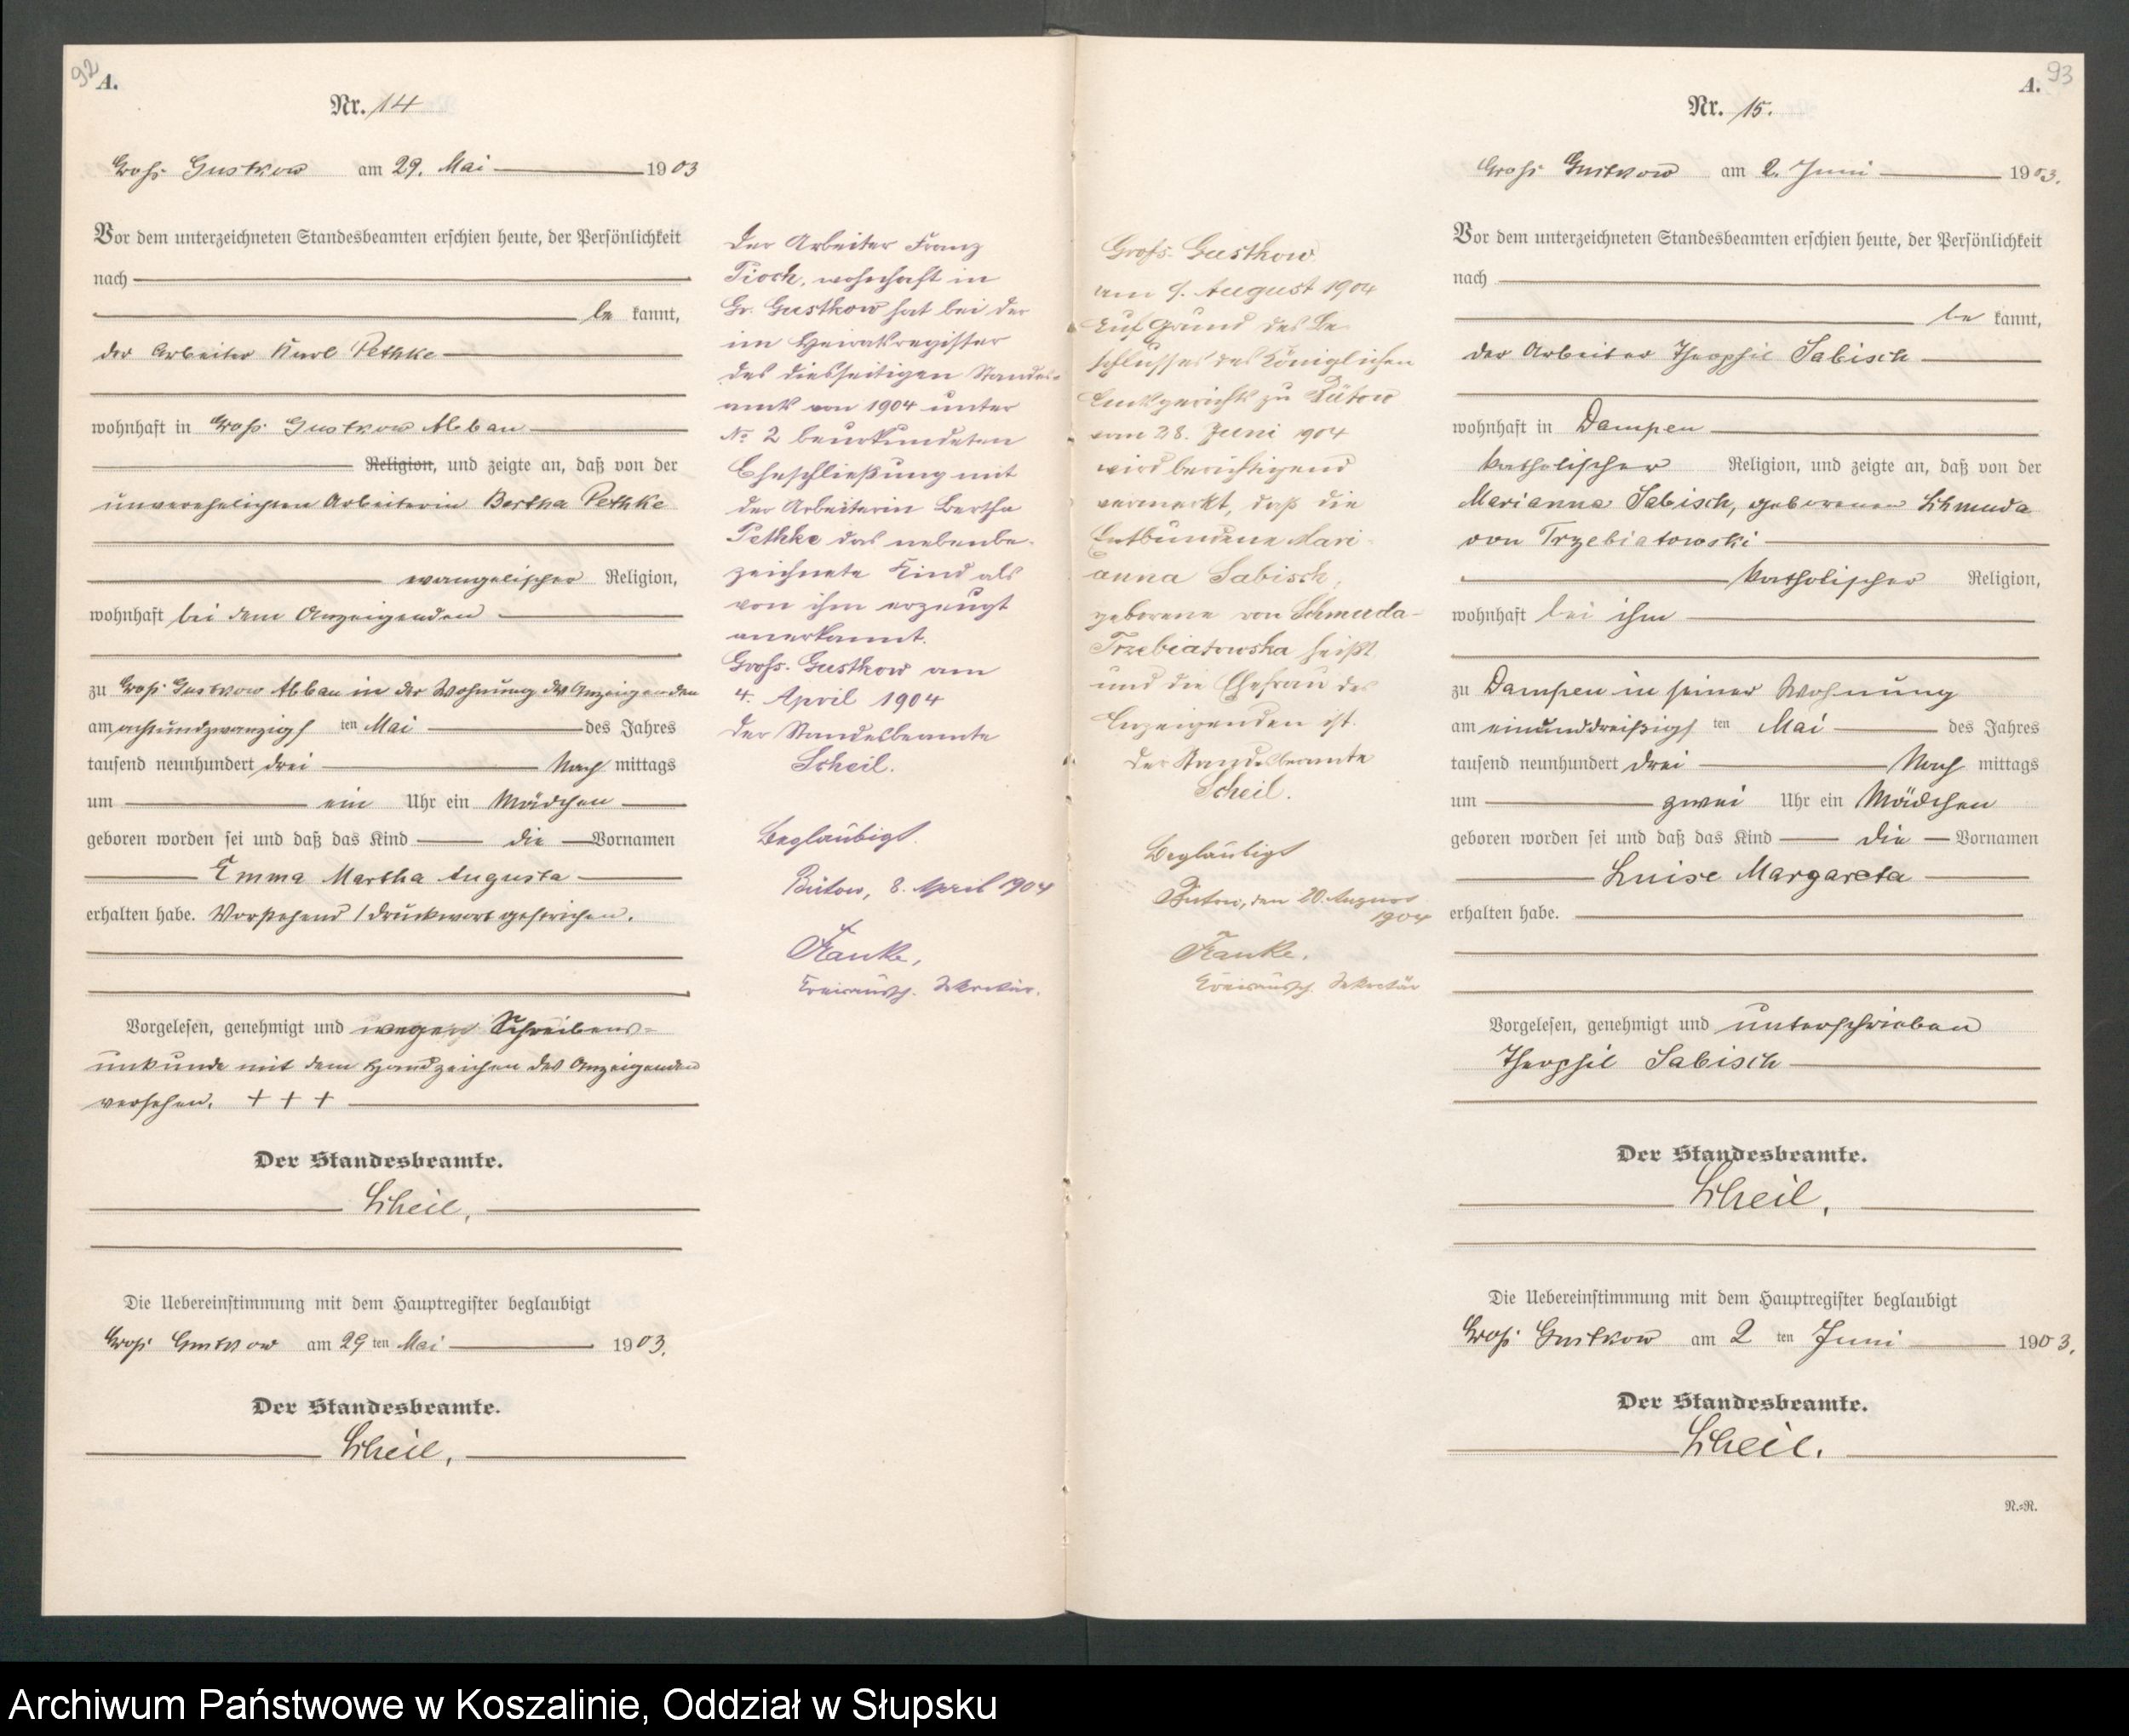 92
A.
Nr. 14
Groß Gustkow am 29. Mai 1903
Vor dem unterzeichneten Standesbeamten erschien heute, der Persönlichkeit
nach
be kannt,
der Arbeiter Karl Pethke
wohnhaft in Groß Gustkow Abbau
Religion, und zeigte an, daß von der
unverehelichten Arbeiterin Bertha Pethke
evangelischer Religion,
wohnhaft bei dem Anzeigenden
zu Groß Gustkow Abbau in der Wohnung des Anzeigenden
am achtundzwanzigsten Mai des Jahres
tausend neunhundert drei Nach mittags
um ein Uhr ein Mädchen
geboren worden sei und daß das Kind die Vornamen
Emma Martha Augusta
erhalten habe. Vorstehend 1 Druckwort gestrichen.
Vorgelesen, genehmigt und wegen Schreibens-
unkunde mit dem Handzeichen des Anzeigenden
versehen. + + +
Der Standesbeamte.
Scheil.
Die Uebereinstimmung mit dem Hauptregister beglaubigt
Groß Gustkow am 29 ten Mai 1903.
Der Standesbeamte.
Scheil.
Der Arbeiter Franz
Pioch, wohnhaft in
Gr. Gustkow hat bei der
im Heiratsregister
des diesseitigen Standes-
amts von 1904 unter
No 2 beurkundeten
Eheschließung mit
der Arbeiterin Bertha
Pethke das nebenbe-
zeichnete Kind als
von ihm erzeugt
anerkannt.
Groß-Gustkow am
4. April 1904
Der Standesbeamte
Scheil.
Beglaubigt.
Bütow, 8. April 1904
Kreisaussch. Sekretär.
Groß-Gustkow
am 9. August 1904
Auf Grund des Be-
schlusses des Königlichen
Amtsgerichts zu Bütow
vom 28. Juni 1904
wird berichtigend
vermerkt, daß die
Entbundene Mari-
anna Sabisch,
geborene von Schmuda-
Trzebiatowska heißt
und die Ehefrau des
Anzeigenden ist.
Der Standesbeamte
Scheil.
Beglaubigt
Bütow, den 20. August
1904
Kreisaussch. Sekretär
93
A.
Nr. 15.
Groß Gustkow am 2. Juni 1903.
Vor dem unterzeichneten Standesbeamten erschien heute, der Persönlichkeit
nach
be kannt,
der Arbeiter Theophil Sabisch
wohnhaft in Dampen
katholischer Religion, und zeigte an, daß von der
Marianna Sabisch, geborenen Schmuda
von Trzebiatowski
katholischer Religion,
wohnhaft bei ihm
zu Dampen in seiner Wohnung
am einunddreißigsten Mai des Jahres
tausend neunhundert drei Nach mittags
um zwei Uhr ein Mädchen
geboren worden sei und daß das Kind die Vornamen
Luise Margareta
erhalten habe.
Vorgelesen, genehmigt und unterschrieben
Theophil Sabisch
Der Standesbeamte.
Scheil.
Die Uebereinstimmung mit dem Hauptregister beglaubigt
Groß Gustkow am 2 ten Juni 1903.
Der Standesbeamte.
Scheil.
N.=N.
Archiwum Państwowe w Koszalinie, Oddział w Słupsku